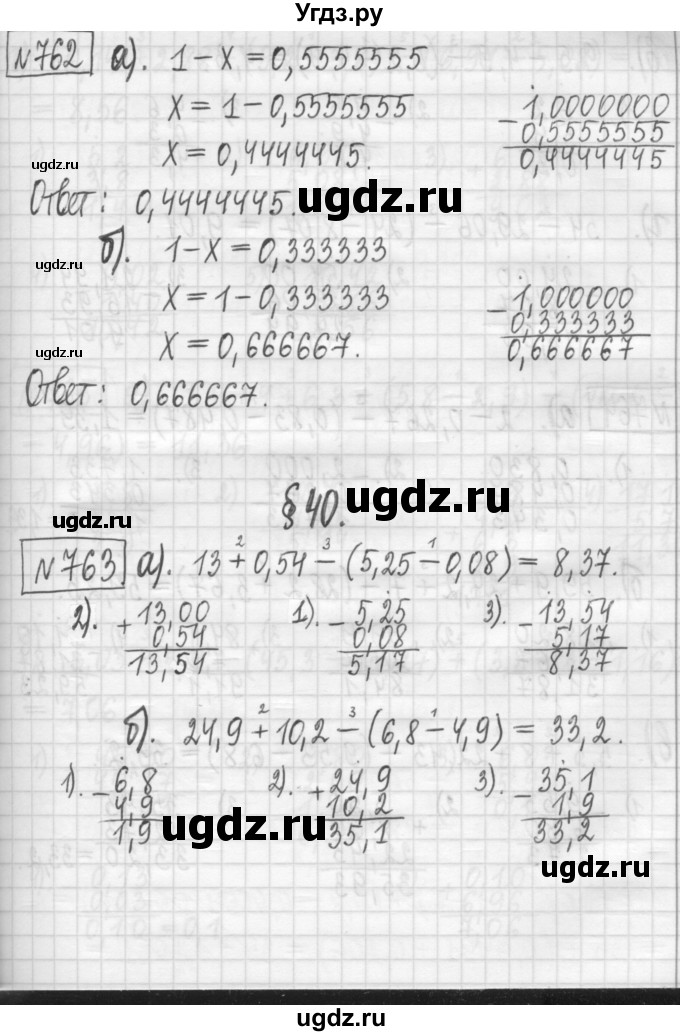 Угдз.ру
№762 а). 1-x=0,5555555
x=1-0,5555555
x=0,4444445.
- 1,0000000
0,5555555
0,4444445
ugdz.ru
Ответ: 0,4444445.
ugdz.ru
ugdz.ru
б). 1-x=0,333333
x=1-0,333333
x=0,666667.
- 1,000000
0,333333
0,666667
ugdz.ru
Ответ: 0,666667.
§40.
ugdz.ru
ugdz.ru
№763 а). 13+0,54-(5,25-0,08)=8,37.
2 3 1
2). + 13,00
0,54
13,54
1). - 5,25
0,08
5,17
3). - 13,54
5,17
8,37
б). 24,9+10,2-(6,8-4,9)=33,2.
2 3 1
1). - 6,8
4,9
1,9
2). + 24,9
10,2
35,1
3). - 35,1
1,9
33,2
ugdz.ru
ugdz.ru
ugdz.ru